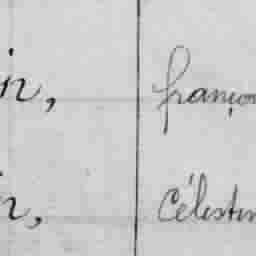 in, françon
n, Célestin